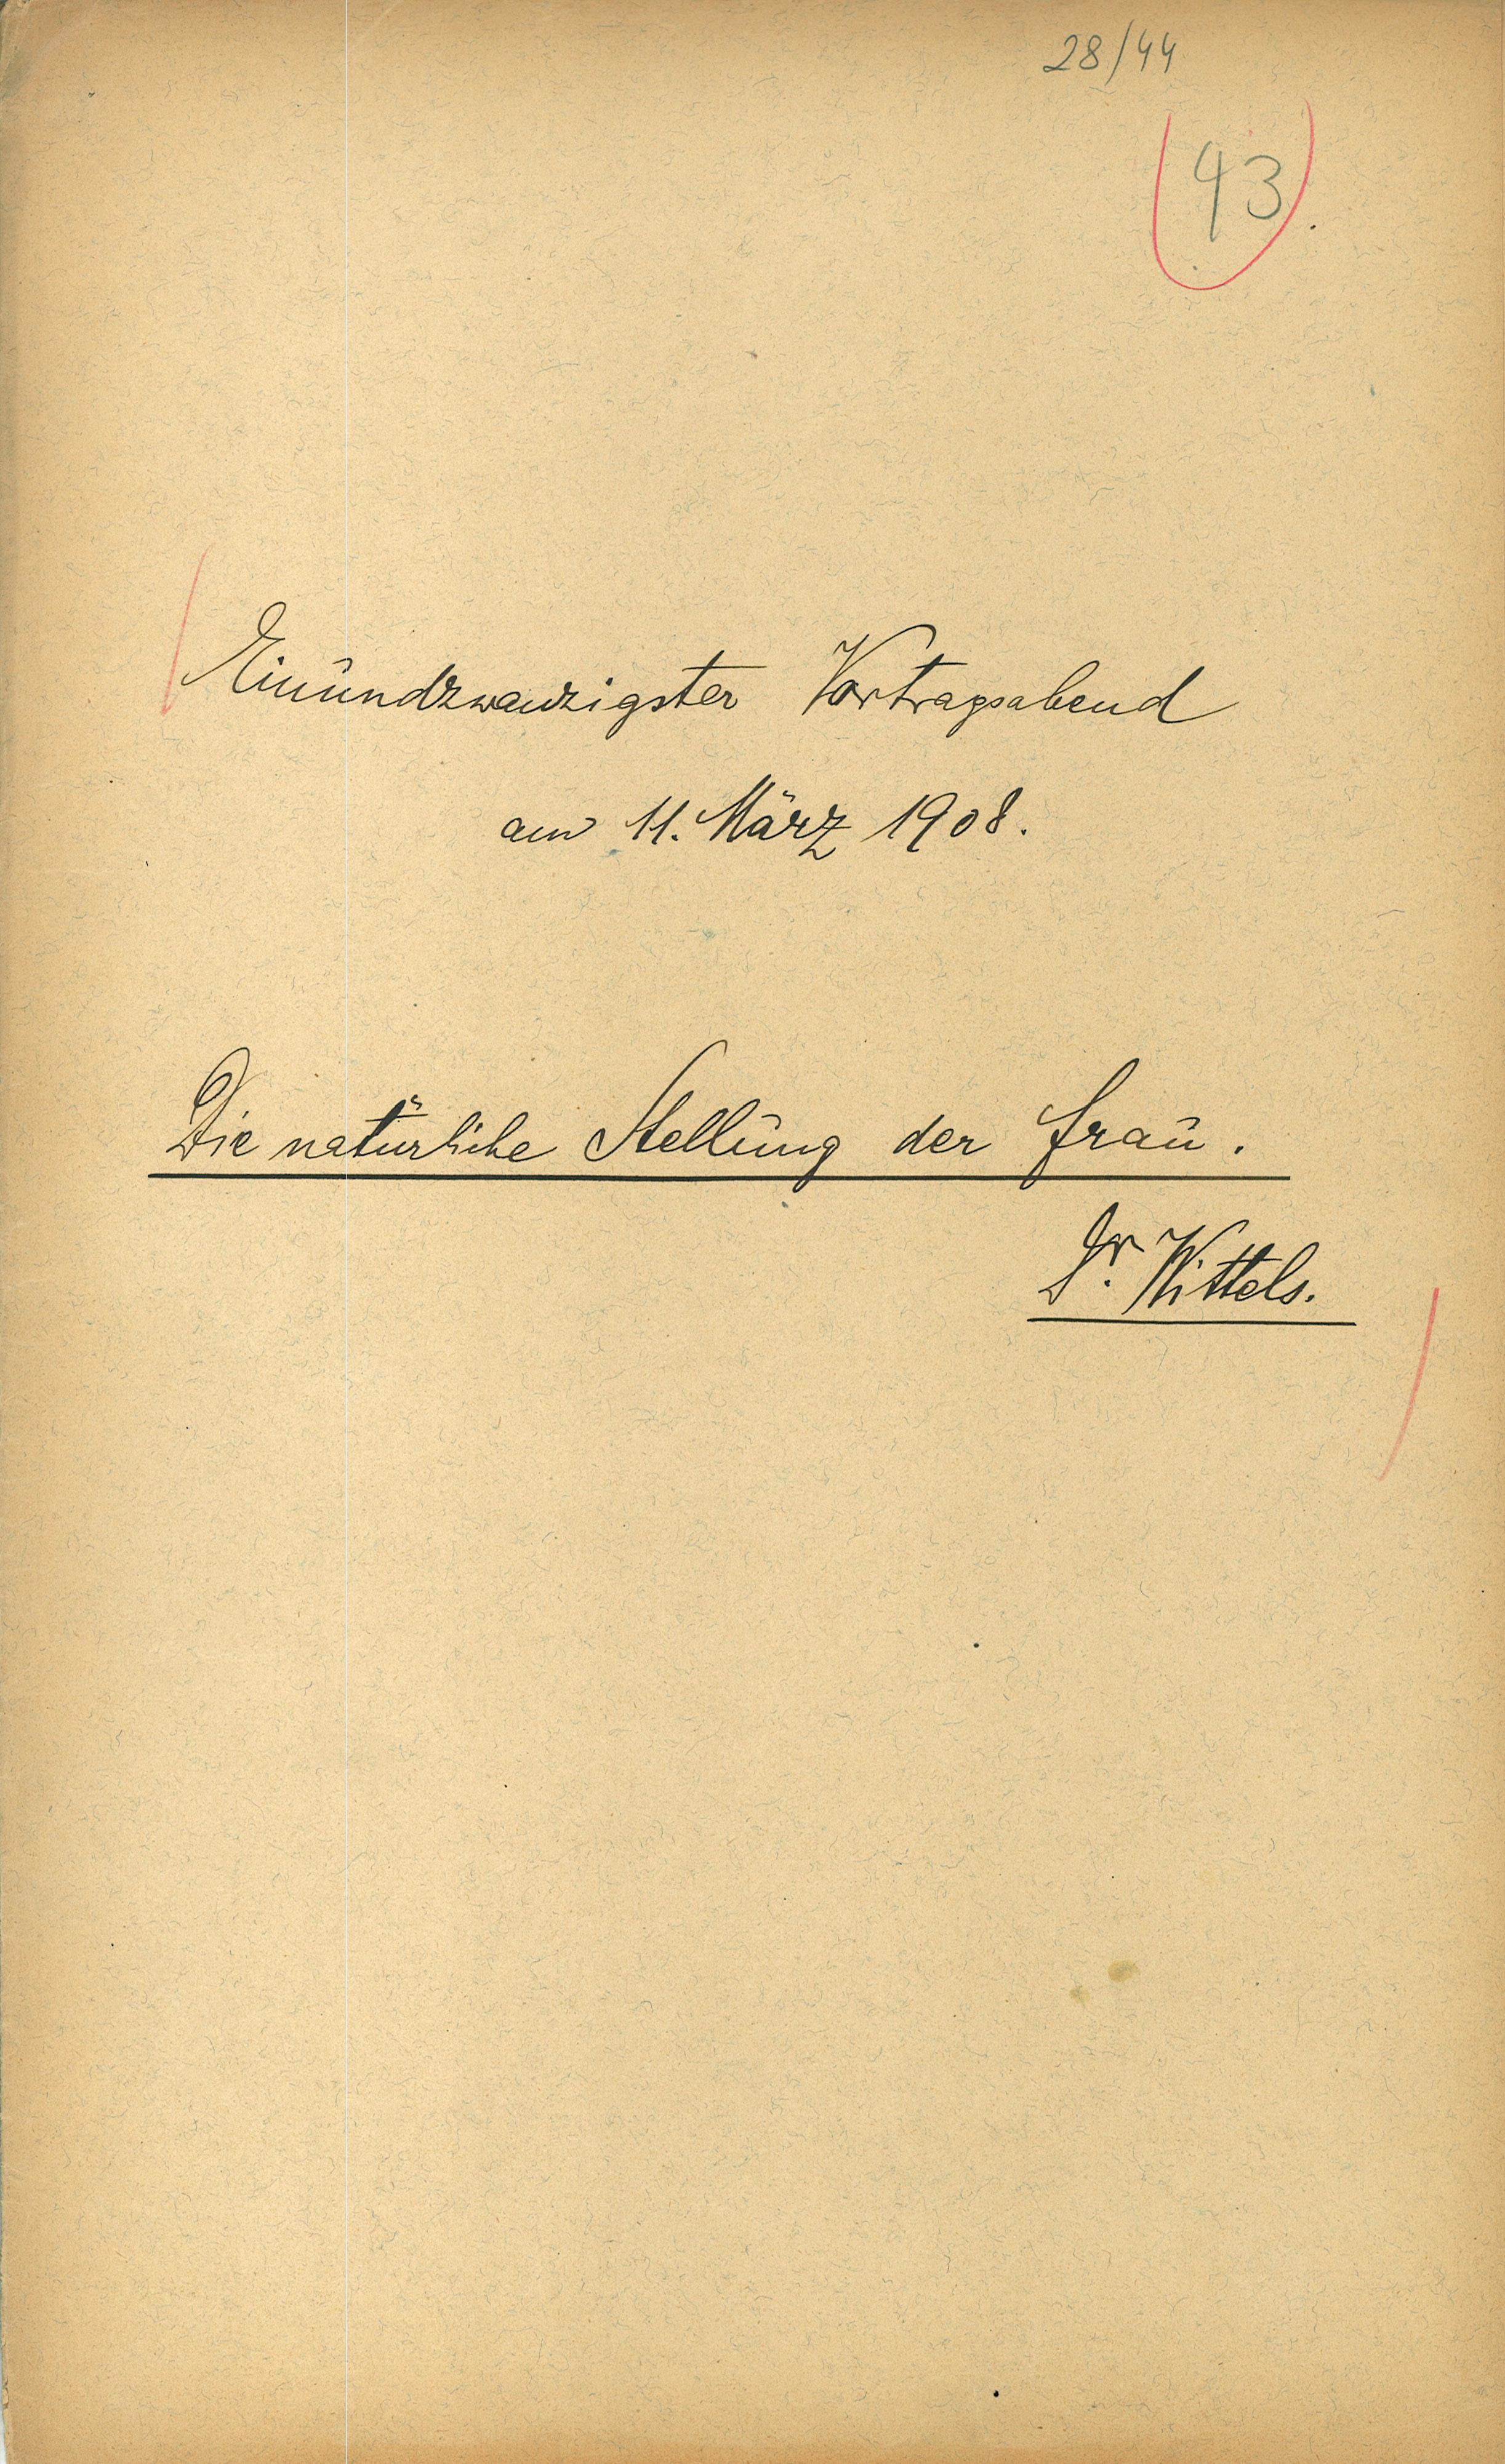 28/44
43
Einundzwanzigster Vortragsabend
am 11. März 1908.
Die natürliche Stellung der Frau.
Dr. Wittels.